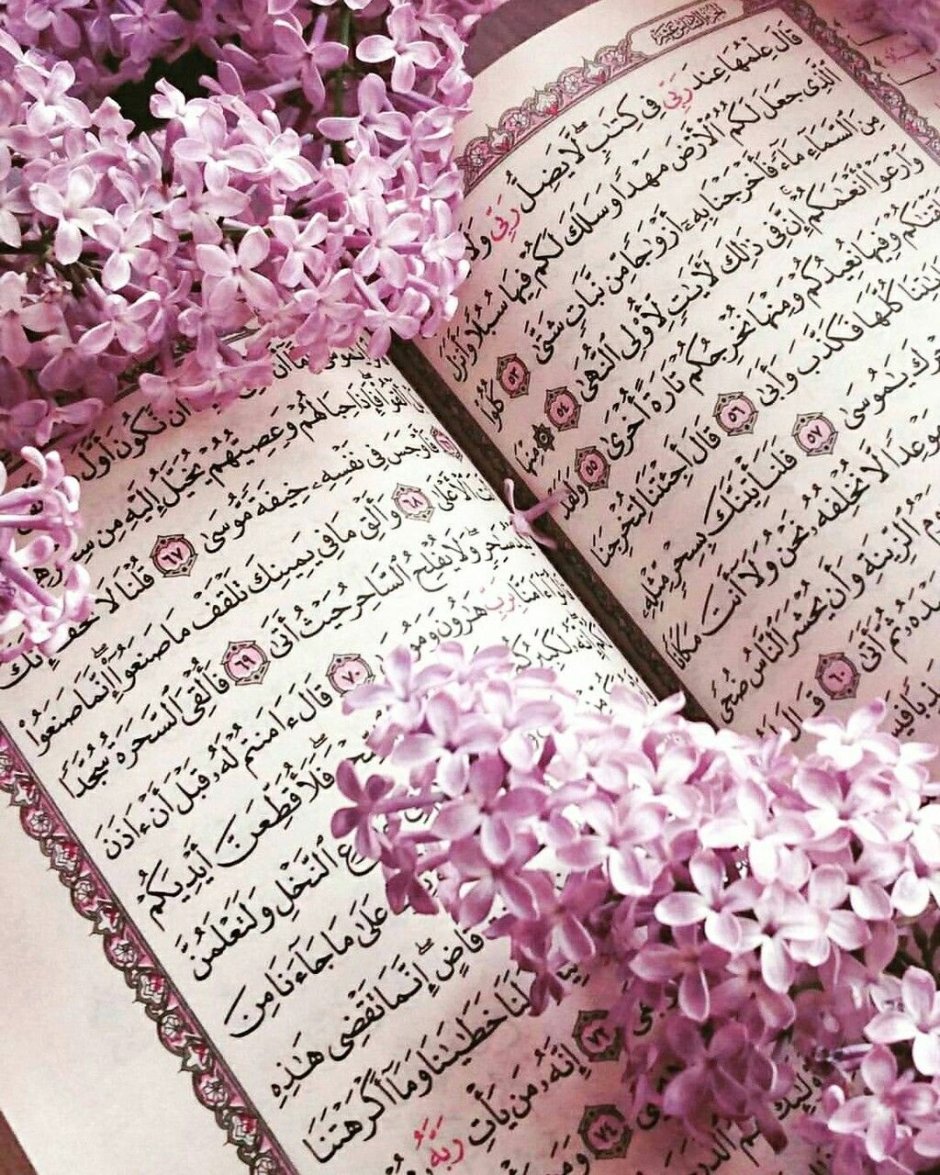 قَالَ عِلْمُهَا عِندَ رَبِّى فِى كِتَٰبٍ ۖ لَّا يَضِلُّ رَبِّى وَلَا
ٱلَّذِى جَعَلَ لَكُمُ ٱلْأَرْضَ مَهْدًا وَسَلَكَ لَكُمْ فِيهَا سُبُلًا وَأَنزَلَ
مِنَ ٱلسَّمَآءِ مَآءً فَأَخْرَجْنَا بِهِۦٓ أَزْوَٰجًا مِّن نَّبَاتٍ شَتَّىٰ ٥٣ كُلُوا۟
وَٱرْعَوْا۟ أَنْعَٰمَكُمْ ۗ إِنَّ فِى ذَٰلِكَ لَءَايَٰتٍ لِّأُو۟لِى ٱلنُّهَىٰ ٥٤ ۞ مِنْهَا
وَفِيهَا نُعِيدُكُمْ وَمِنْهَا نُخْرِجُكُمْ تَارَةً أُخْرَىٰ ٥٥ وَلَقَدْ
كُلَّهَا فَكَذَّبَ وَأَبَىٰ ٥٦ قَالَ أَجِئْتَنَا لِتُخْرِجَنَا
يَٰمُوسَىٰ ٥٧ فَلَنَأْتِيَنَّكَ بِسِحْرٍ مِّثْلِهِۦ
لَّا نُخْلِفُهُۥ نَحْنُ وَلَآ أَنتَ مَكَانًا
ٱلزِّينَةِ وَأَن يُحْشَرَ ٱلنَّاسُ ضُحًى
ثُمَّ أَتَىٰ ٦٠ قَالَ
نَّكُونَ أَوَّلَ
فَإِذَا حِبَالُهُمْ وَعِصِيُّهُمْ يُخَيَّلُ إِلَيْهِ مِن
فَأَوْجَسَ فِى نَفْسِهِۦ خِيفَةً مُّوسَىٰ ٦٧ قُلْنَا لَا تَخَفْ إِنَّكَ
ٱلْأَعْلَىٰ ٦٨ وَأَلْقِ مَا فِى يَمِينِكَ تَلْقَفْ مَا صَنَعُوٓا۟ ۖ إِنَّمَا صَنَعُوا۟
سَٰحِرٍ ۖ وَلَا يُفْلِحُ ٱلسَّاحِرُ حَيْثُ أَتَىٰ ٦٩ فَأُلْقِىَ ٱلسَّحَرَةُ سُجَّدًا
ءَامَنَّا بِرَبِّ هَٰرُونَ وَمُوسَىٰ ٧٠ قَالَ ءَامَنتُمْ لَهُۥ قَبْلَ أَنْ ءَاذَنَ
لَكَبِيرُكُمُ فَلَأُقَطِّعَنَّ أَيْدِيَكُمْ
ٱلنَّخْلِ وَلَتَعْلَمُنَّ
عَلَىٰ مَا جَآءَنَا مِنَ
قَاضٍ ۖ إِنَّمَا تَقْضِى هَٰذِهِ
لَنَا خَطَٰيَٰنَا وَمَآ أَكْرَهْتَنَا
٧٣ إِنَّهُۥ مَن يَأْتِ رَبَّهُۥ
٧٤ وَمَن